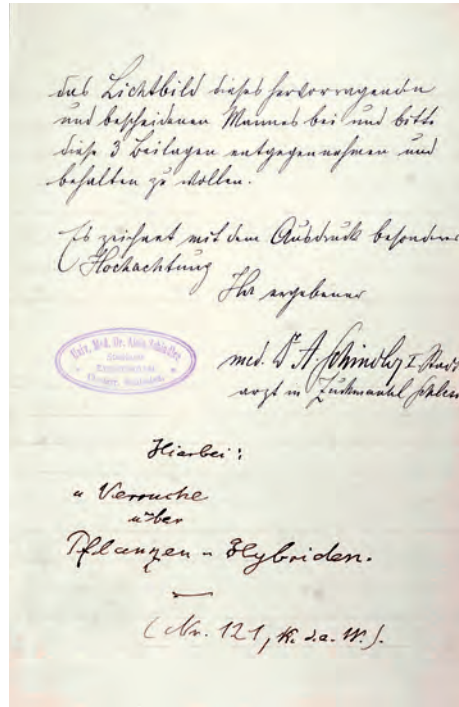 das Lichtbild dieses hervorragenden
und bescheidenen Mannes bei und bitte
diese 3 Beilagen entgegennehmen und
behalten zu wollen.
Es zeichnet mit dem Ausdruck besonderer
Hochachtung
Ihr ergebener
Univ. Med. Dr. Alois Schindler
med. Dr A. Schindler I Stadt
arzt in Zuckmantel Schles
Hierbei:
"Versuche
über
Pflanzen-Hybriden.
(Nr. 121, K. d. a. W.).